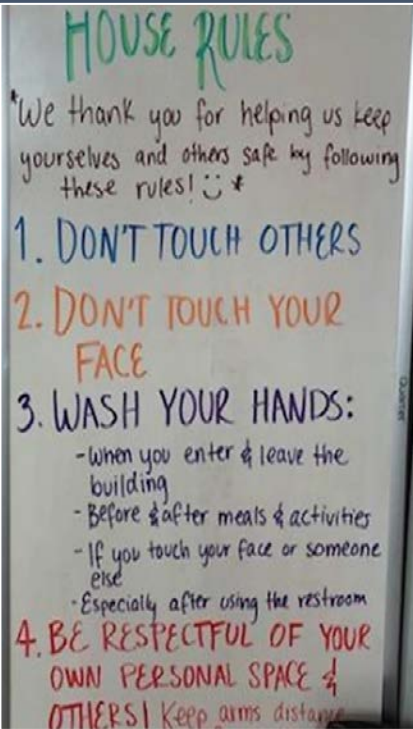 HOUSE RULES
*We thank you for helping us keep
yourselves and others safe by following
these rules! ☺ *
1. DON'T TOUCH OTHERS
2. DON'T TOUCH YOUR
FACE
3. WASH YOUR HANDS:
- When you enter & leave the
building
- Before & after meals & activities
- If you touch your face or someone
else
- Especially after using the restroom
4. BE RESPECTFUL OF YOUR
OWN PERSONAL SPACE &
OTHERS! Keep arms distance
Quartet